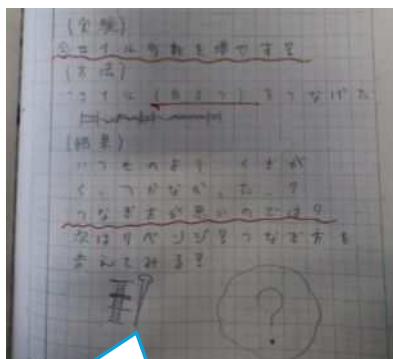 (実験)
①コイルの数を増やす?
(方法)
コイル(2まき)をつなげた
(結果)
いつものよう くぎが
くっつかなかった。?
つなぎ方が悪いのでは?
次はリベンジ?つなぎ方を
考えてみる?
?